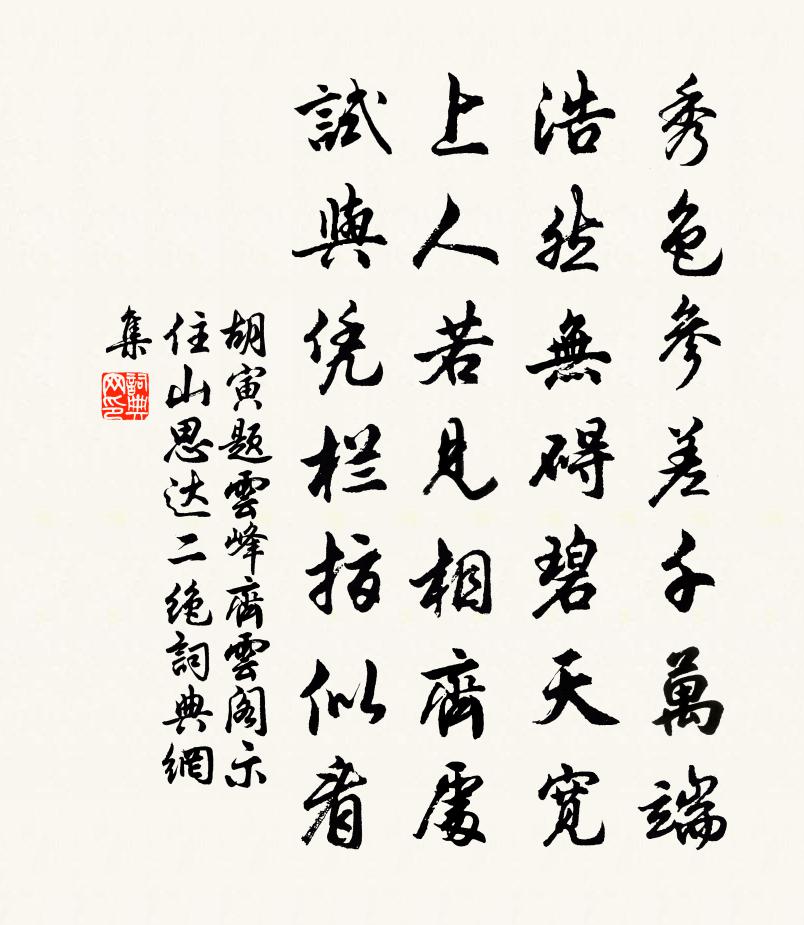 秀色參差千萬端
浩然無碍碧天寬
上人若見相齊處
試與凭栏指似看
胡寅题雲峰齊雲閣示
住山思达二絶詞典網
集
詞典网印